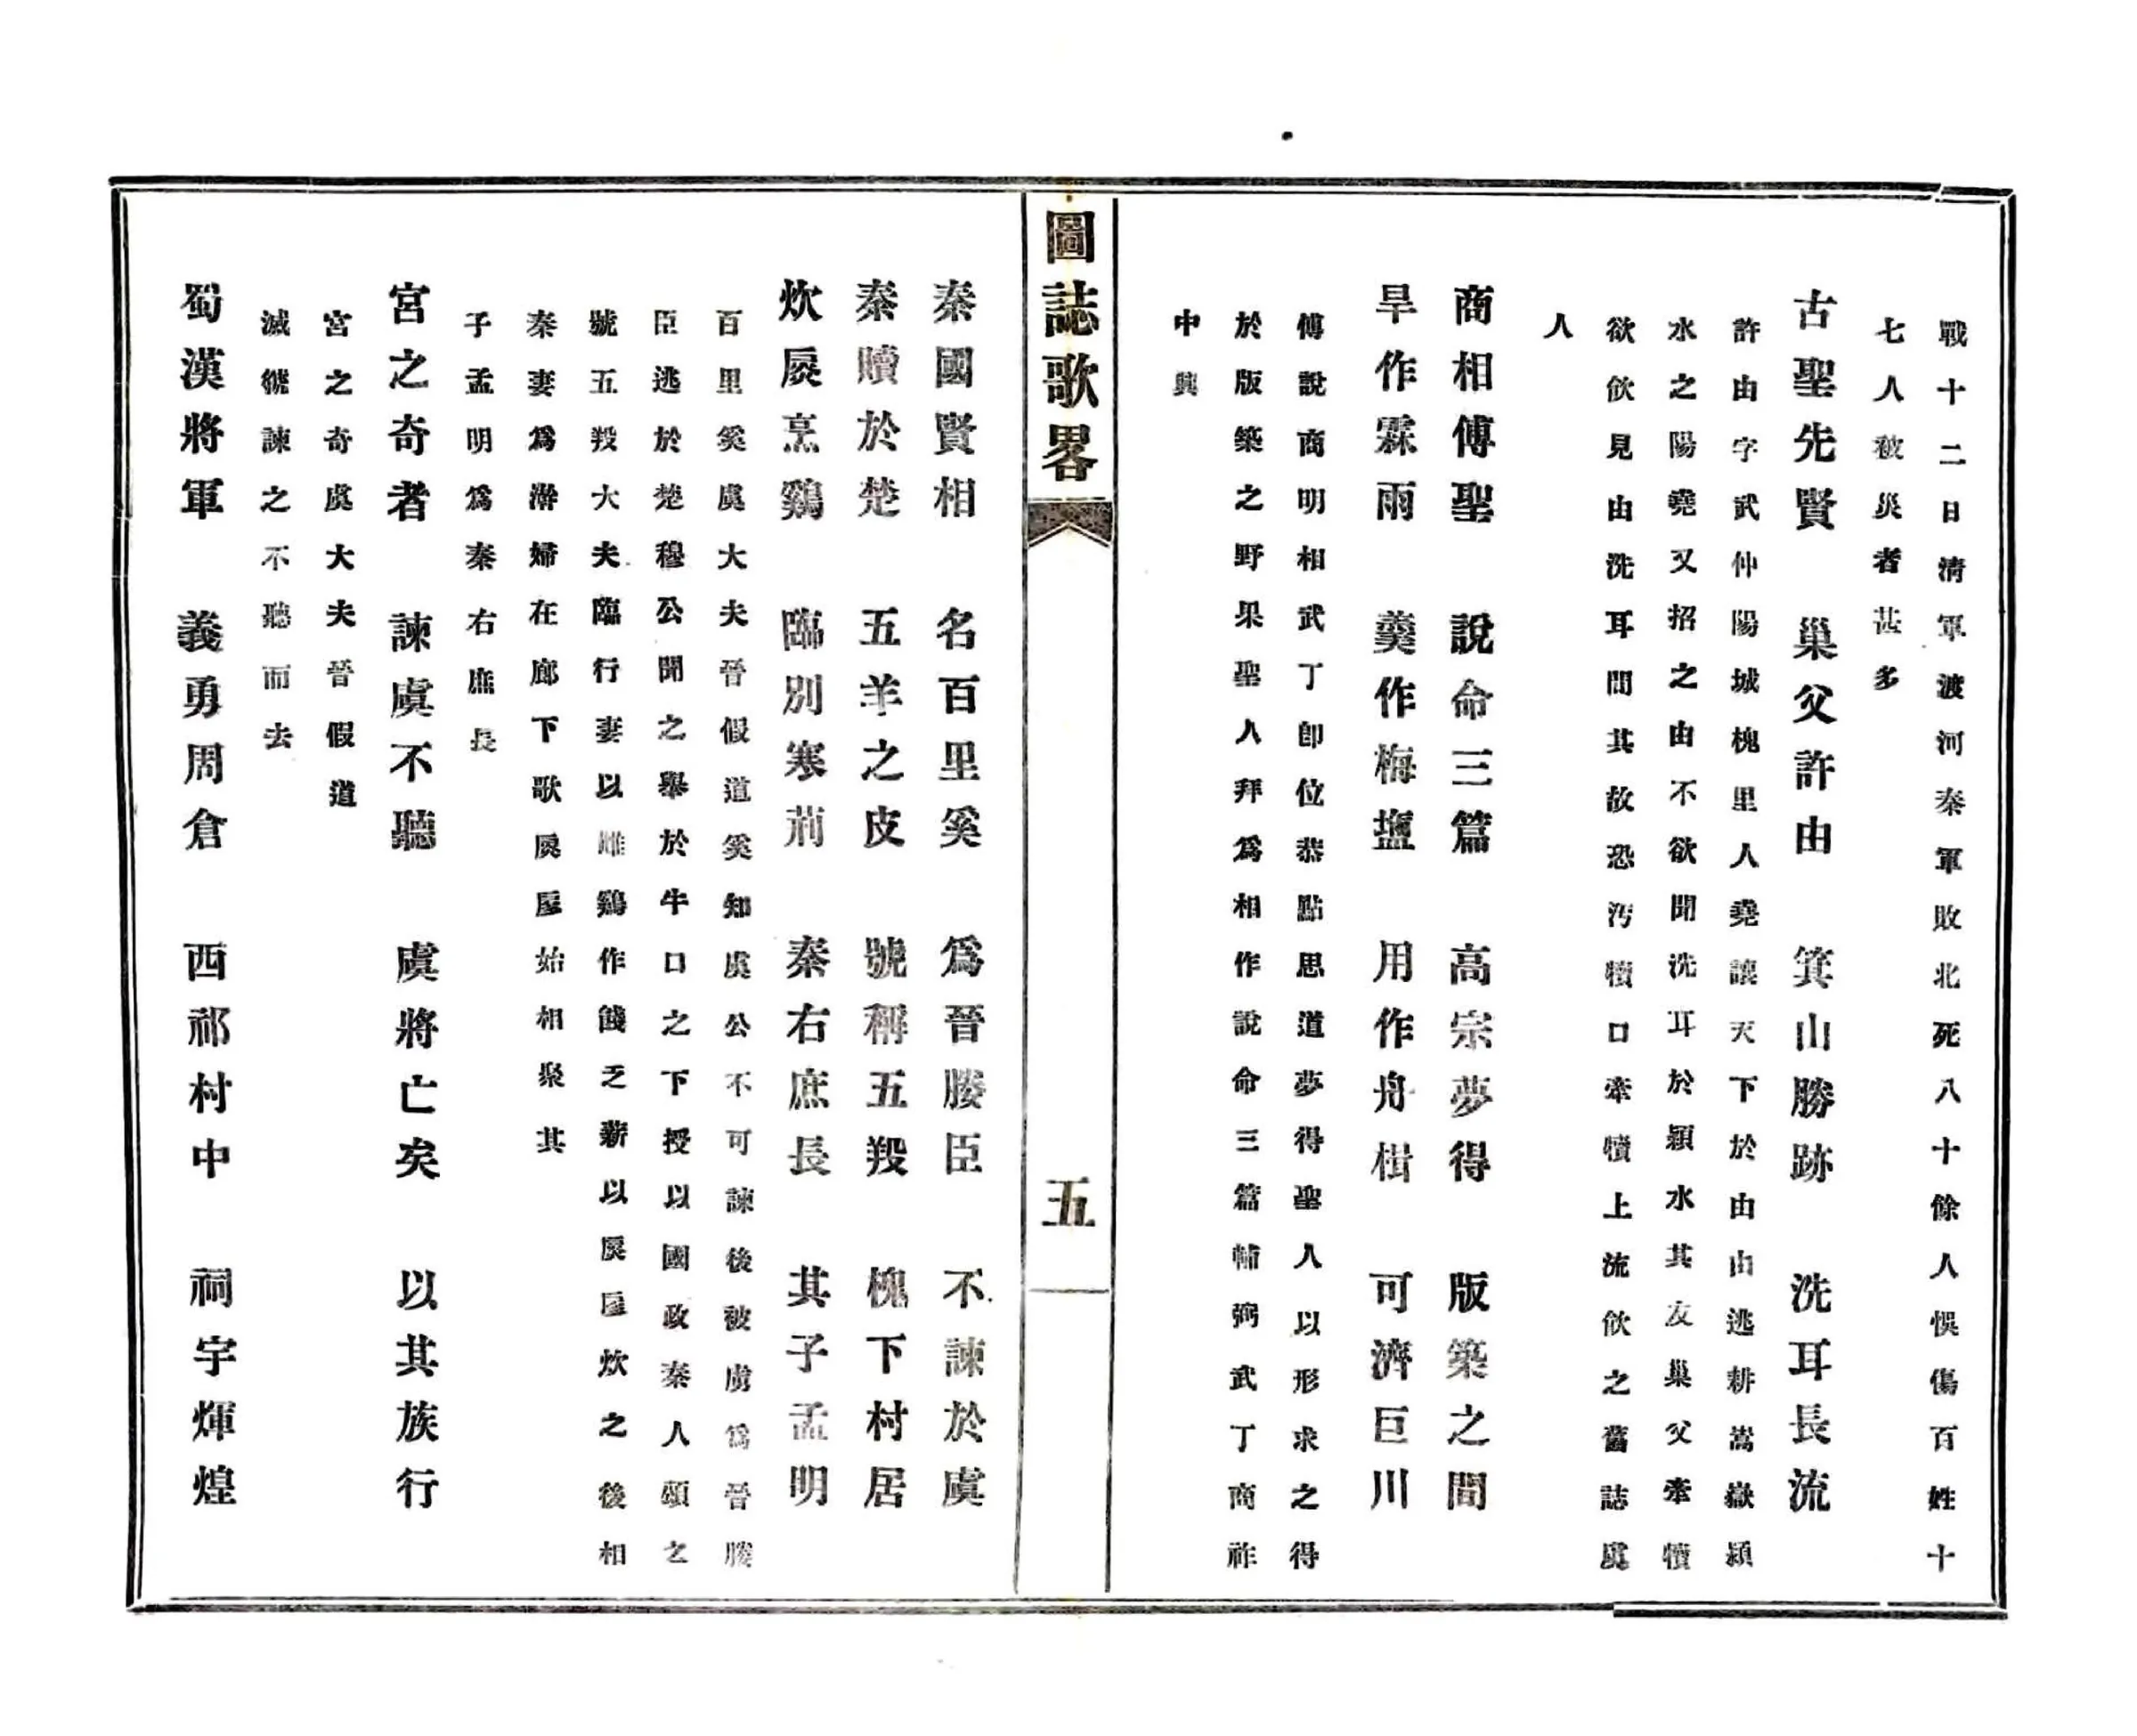 戰十二日清軍渡河秦軍敗北死八十餘人悞傷百姓十
七人被災者甚多
古聖先賢　巢父許由　箕山勝跡　洗耳長流
許由字武仲陽城槐里人堯讓天下於由由逃耕嵩嶽潁
水之陽堯又招之由不欲聞洗耳於潁水其友巢父牽犢
欲飲見由洗耳問其故恐汚犢口牽犢上流飲之舊誌虞
人
商相傅聖　說命三篇　高宗夢得　版築之間
旱作霖雨　羹作梅鹽　用作舟楫　可濟巨川
傅說商明相武丁卽位恭默思道夢得聖人以形求之得
於版築之野果聖人拜爲相作說命三篇輔弼武丁商祚
中興
圖誌歌畧
五
秦國賢相　名百里奚　爲晉媵臣　不諫於虞
秦贖於楚　五羊之皮　號稱五羖　槐下村居
炊扊烹鷄　臨別寒荊　秦右庶長　其子孟明
百里奚虞大夫晉假道奚知虞公不可諫後被虜爲晉媵
臣逃於楚穆公聞之舉於牛口之下授以國政秦人頌之
號五羖大夫臨行妻以雌鷄作餞乏薪以扊扅炊之後相
秦妻爲澣婦在廊下歌扊扅始相聚其
子孟明爲秦右庶長
宮之奇者　諫虞不聽　虞將亡矣　以其族行
宮之奇虞大夫晉假道
滅虢諫之不聽而去
蜀漢將軍　義勇周倉　西祁村中　祠宇煇煌